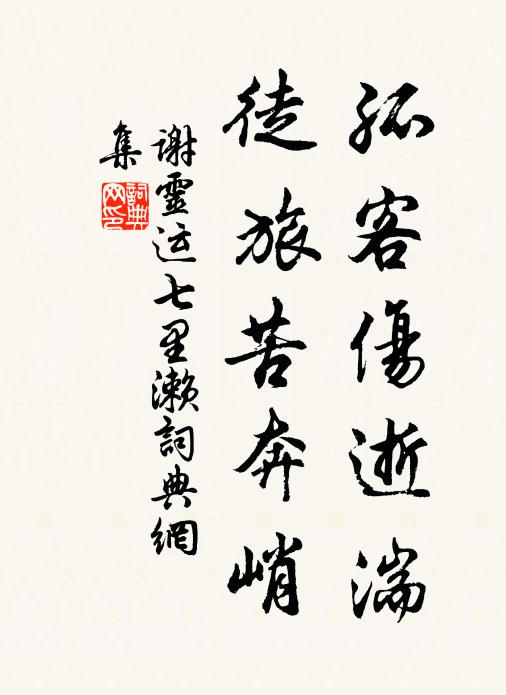 孤客傷逝湍
徒旅苦奔峭
謝靈运七里濑詞典網
集
詞典網印